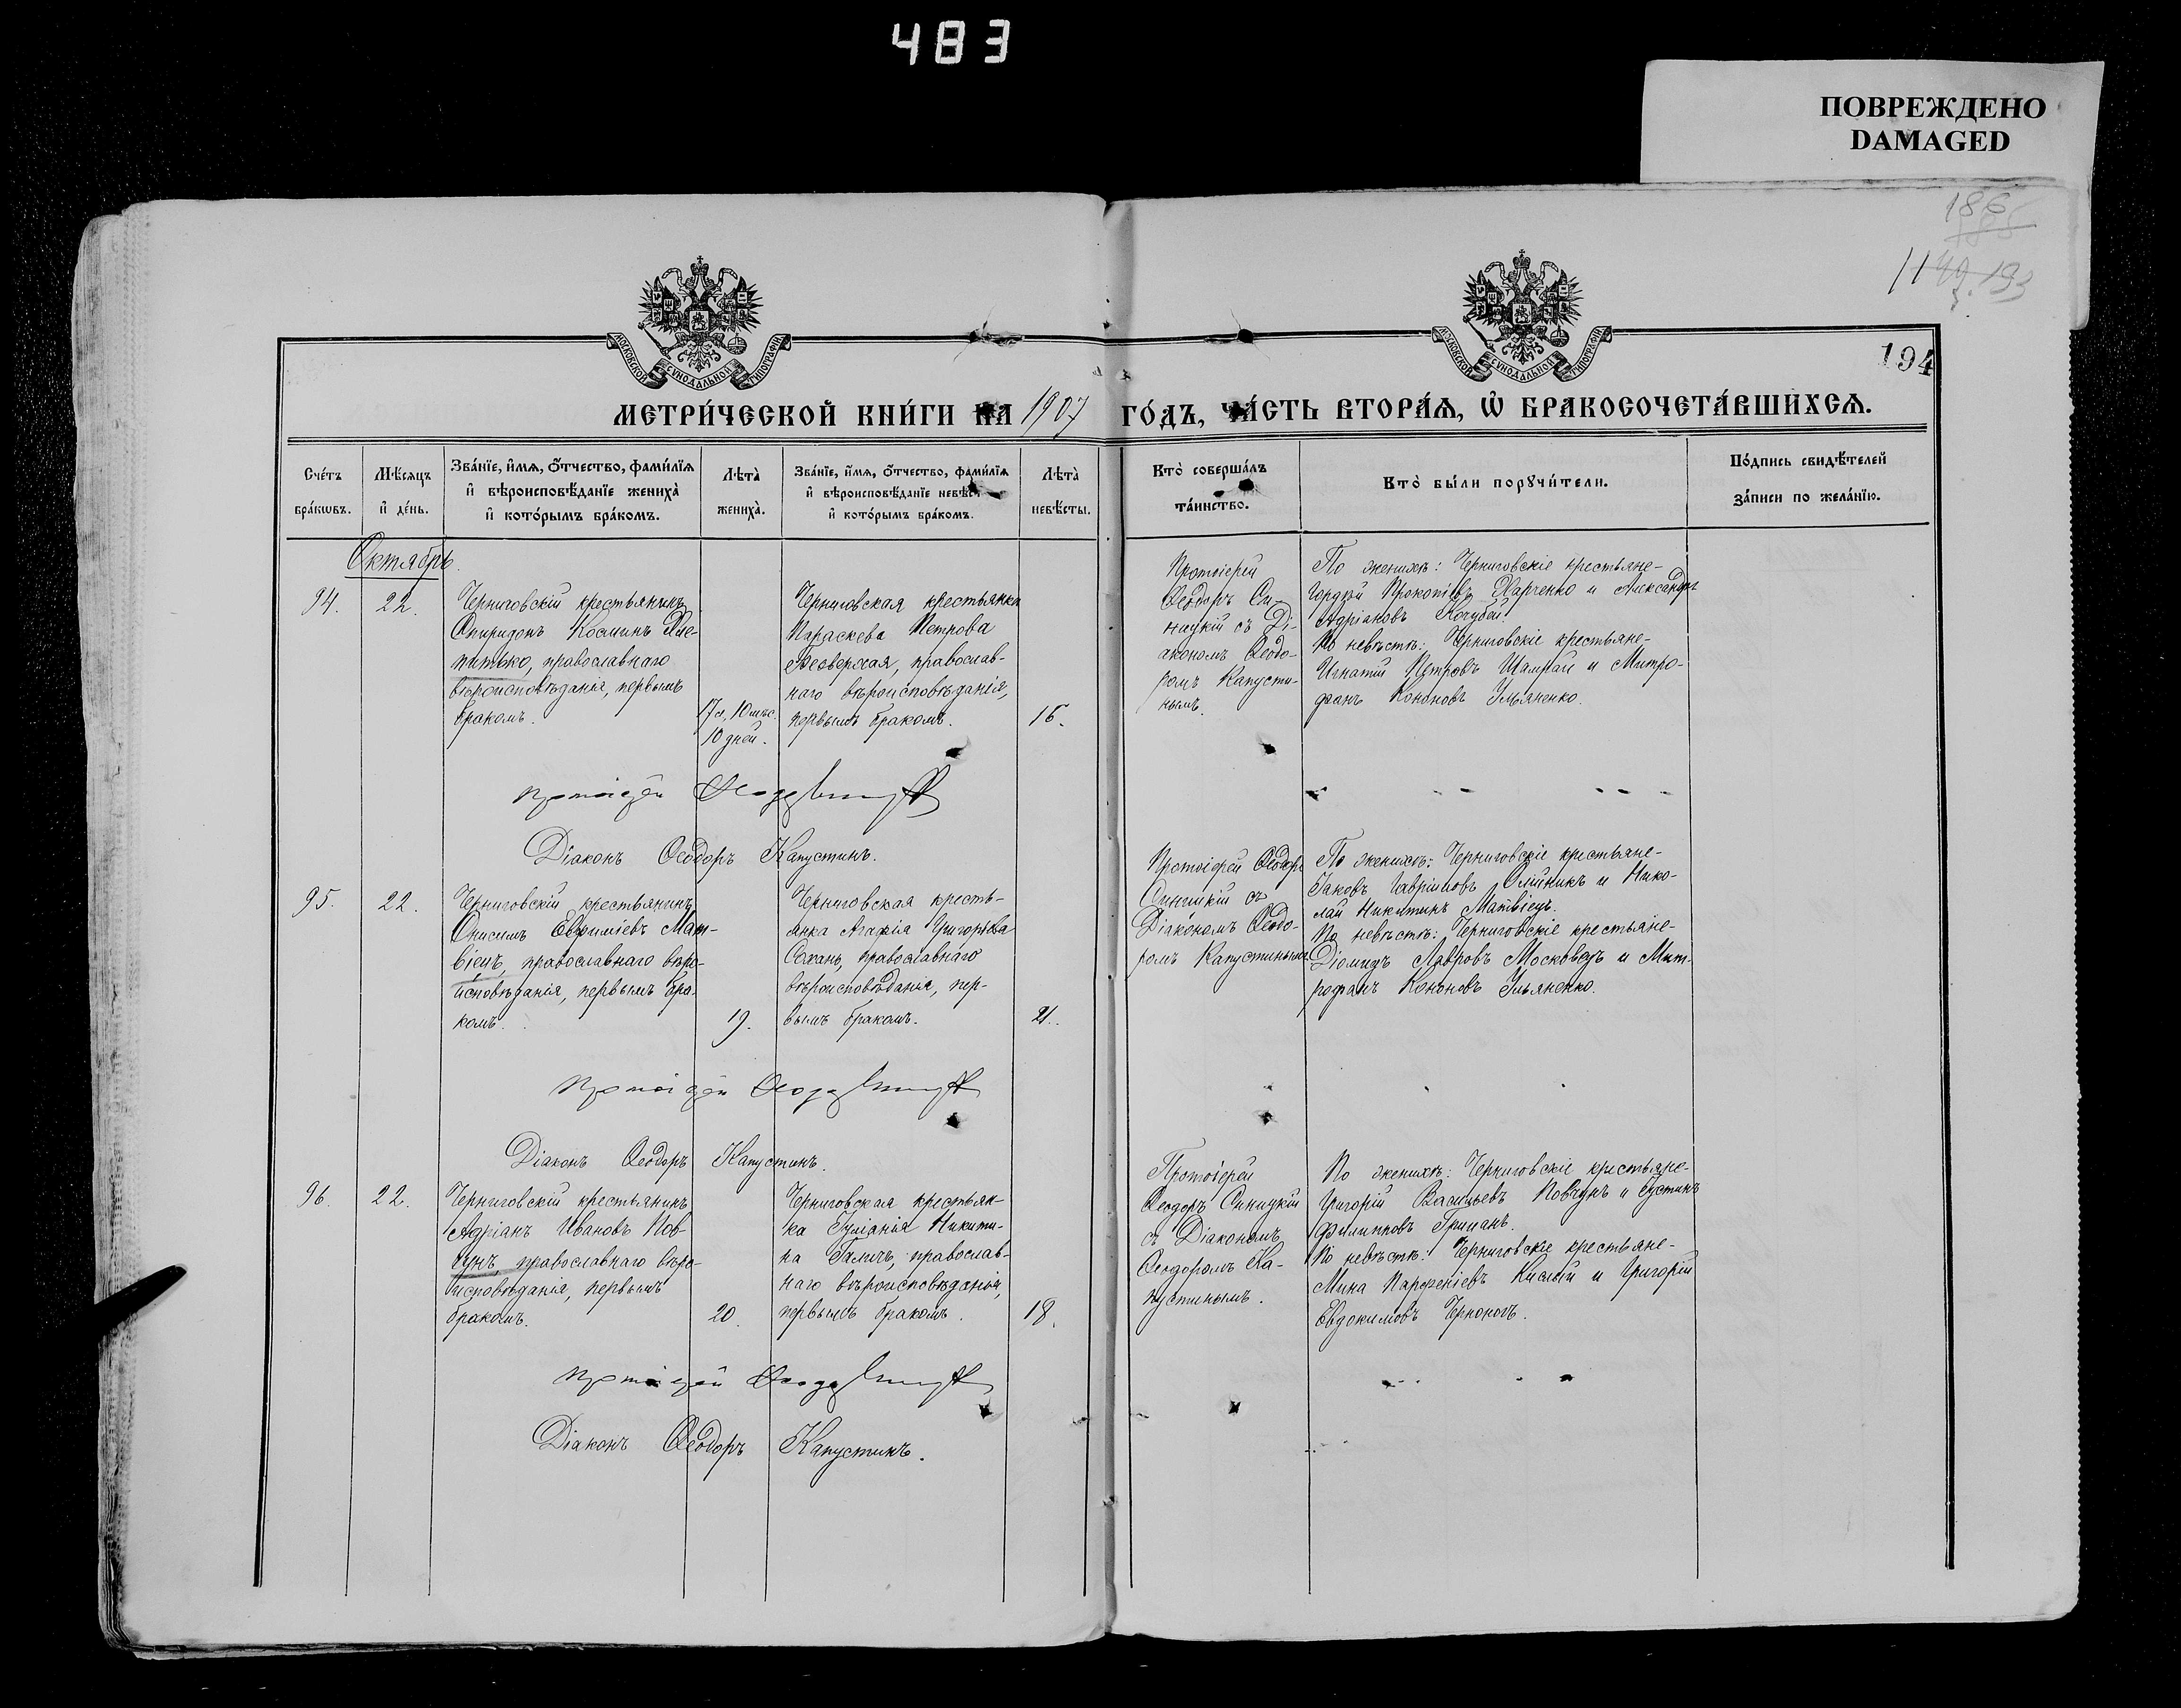 483
ПОВРЕЖДЕНО
DAMAGED
186
193
194
МОСКОВСКОЙ СУНОДАЛЬНОЙ ТИПОГРАФІИ
МОСКОВСКОЙ СУНОДАЛЬНОЙ ТИПОГРАФІИ
МЕТРИ́ЧЕСКОЙ КНИ́ГИ НА 1907 ГО́ДЪ, ЧА́СТЬ ВТОРА́Ѧ, Ѽ БРАКОСОЧЕТА́ВШИХСѦ.
Сче́тъ бра́кѡвъ.
Мѣ́сѧцъ и҆ де́нь.
Зва́нїе, и҆́мѧ, ѻ҆́тчество, фами́лїѧ и҆ вѣроисповѣ́данїе жениха̀ и҆ кото́рымъ бра́комъ.
Лѣта̀ жениха̀.
Зва́нїе, и҆́мѧ, ѻ҆́тчество, фами́лїѧ и҆ вѣроисповѣ́данїе невѣ́сты и҆ кото́рымъ бра́комъ.
Лѣта̀ невѣ́сты.
Кто̀ соверша́лъ та́инство.
Кто̀ бы́ли порꙋчи́тели.
По́дпись свидѣ́телей за́писи по жела́нїю.
Октябрь.
94.
22.
Черниговскій крестьянинъ
Спиридонъ Косминъ Хле-
питько, православнаго
вѣроисповѣданія, первымъ
бракомъ.
17 л. 10 мѣс.
10 дней.
Черниговская крестьянка
Параскева Петрова
православ-
наго вѣроисповѣданія,
первымъ бракомъ.
16.
Протоіерей
Ѳеодоръ Си-
ницкій съ Ді-
акономъ Ѳеодо-
ромъ Капусти-
нымъ.
По женихѣ: Черниговскіе крестьяне-
Гордѣй Прокопіевъ Харченко и Александръ
Адріановъ Кочубей.
По невѣстѣ: Черниговскіе крестьяне-
Игнатій Петровъ Шамрай и Митро-
фанъ Кононовъ Ульяненко.
Протоіерей Ѳеодоръ Синицкій
Діаконъ Ѳеодоръ Капустинъ.
95.
22.
Черниговскій крестьянинъ
Онисимъ Евфиміевъ Мат-
віецъ, православнаго вѣро-
исповѣданія, первымъ бра-
комъ.
19.
Черниговская кресть-
янка Агафія Григорьева
Сохань, православнаго
вѣроисповѣданія, пер-
вымъ бракомъ.
21.
Протоіерей Ѳеодоръ
Синицкій съ
Діакономъ Ѳеодо-
ромъ Капустинымъ.
По женихѣ: Черниговскіе крестьяне-
Іаковъ Гавріиловъ Олійникъ и Нико-
лай Никитинъ Матвіецъ.
По невѣстѣ: Черниговскіе крестьяне-
Діомидъ Лавровъ Московецъ и Мит-
рофанъ Кононовъ Ульяненко.
Протоіерей Ѳеодоръ Синицкій
Діаконъ Ѳеодоръ Капустинъ.
96.
22.
Черниговскій крестьянинъ
Адріанъ Ивановъ Пов-
чунъ, православнаго вѣро-
исповѣданія, первымъ
бракомъ.
20.
Черниговская крестьян-
ка Іуліанія Никити-
на Галичъ, православ-
наго вѣроисповѣданія,
первымъ бракомъ.
18.
Протоіерей
Ѳеодоръ Синицкій
съ Діакономъ
Ѳеодоромъ Ка-
пустинымъ.
По женихѣ: Черниговскіе крестьяне-
Григорій Васильевъ Повчунъ и Іустинъ
Филипповъ Грицанъ.
По невѣстѣ: Черниговскіе крестьяне-
Мина Парфеніевъ Кислый и Григорій
Евдокимовъ
Протоіерей Ѳеодоръ Синицкій
Діаконъ Ѳеодоръ Капустинъ.